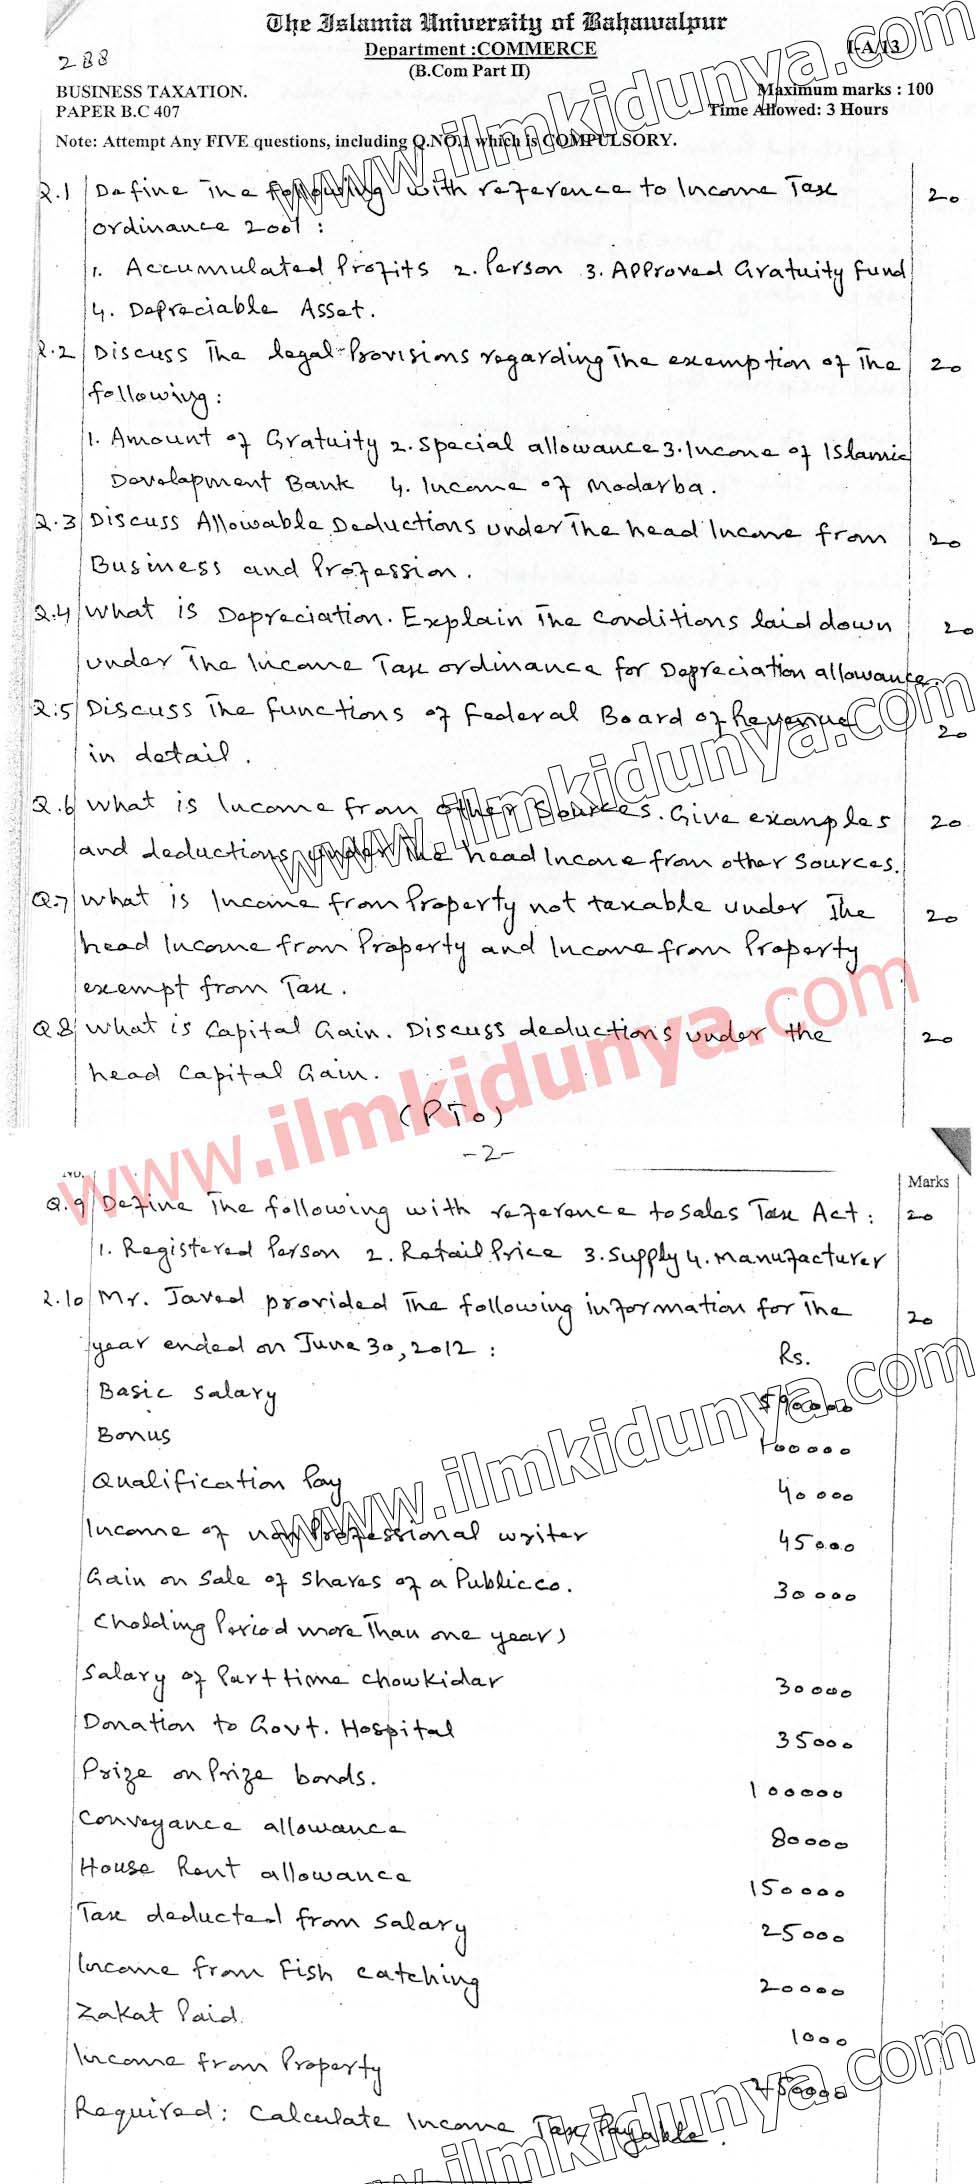 The Islamia University of Bahawalpur
Department :COMMERCE
I-A/13
(B.Com Part II)
288
BUSINESS TAXATION.
Maximum marks : 100
PAPER B.C 407
Time Allowed: 3 Hours
Note: Attempt Any FIVE questions, including Q.NO.1 which is COMPULSORY.
www.ilmkidunya.com
Q.1 Define The following with reference to Income Tax 20
ordinance 2001 :
1. Accumulated Profits 2. Person 3. Approved Gratuity Fund
4. Depreciable Asset.
Q.2 Discuss The legal Provisions regarding The exemption of The 20
following :
1. Amount of Gratuity 2. Special allowance 3. Income of Islamic
Development Bank 4. Income of Modarba.
Q.3 Discuss Allowable Deductions under The head Income from 20
Business and Profession.
Q.4 What is Depreciation. Explain The conditions laid down 20
under The Income Tax ordinance for Depreciation allowance.
Q.5 Discuss The functions of Federal Board of Revenue 20
in detail.
www.ilmkidunya.com
Q.6 What is Income from other Sources. Give examples 20
and deductions under The head Income from other Sources.
Q.7 What is Income from Property not taxable under The 20
head Income from Property and Income from Property
exempt from Tax.
Q8 What is Capital Gain. Discuss deductions under the 20
head Capital Gain.
www.ilmkidunya.com
(PTO)
-2-
No.
Marks
Q.9 Define The following with reference to Sales Tax Act : 20
1. Registered Person 2. Retail Price 3. Supply 4. Manufacturer
Q.10 Mr. Javed provided The following information for The 20
year ended on June 30, 2012 : Rs.
Basic Salary 590000
Bonus 100000
Qualification Pay 40000
www.ilmkidunya.com
Income of non Professional writer 45000
Gain on Sale of Shares of a Public co. 30000
(holding Period more Than one year)
Salary of Part time Chowkidar 30000
Donation to Govt. Hospital 35000
Prize on Prize bonds. 100000
Conveyance allowance 80000
House Rent allowance 150000
Tax deducted from Salary 25000
Income from Fish catching 20000
Zakat Paid 1000
Income from Property 250000
Required: Calculate Income Tax Payable.
www.ilmkidunya.com